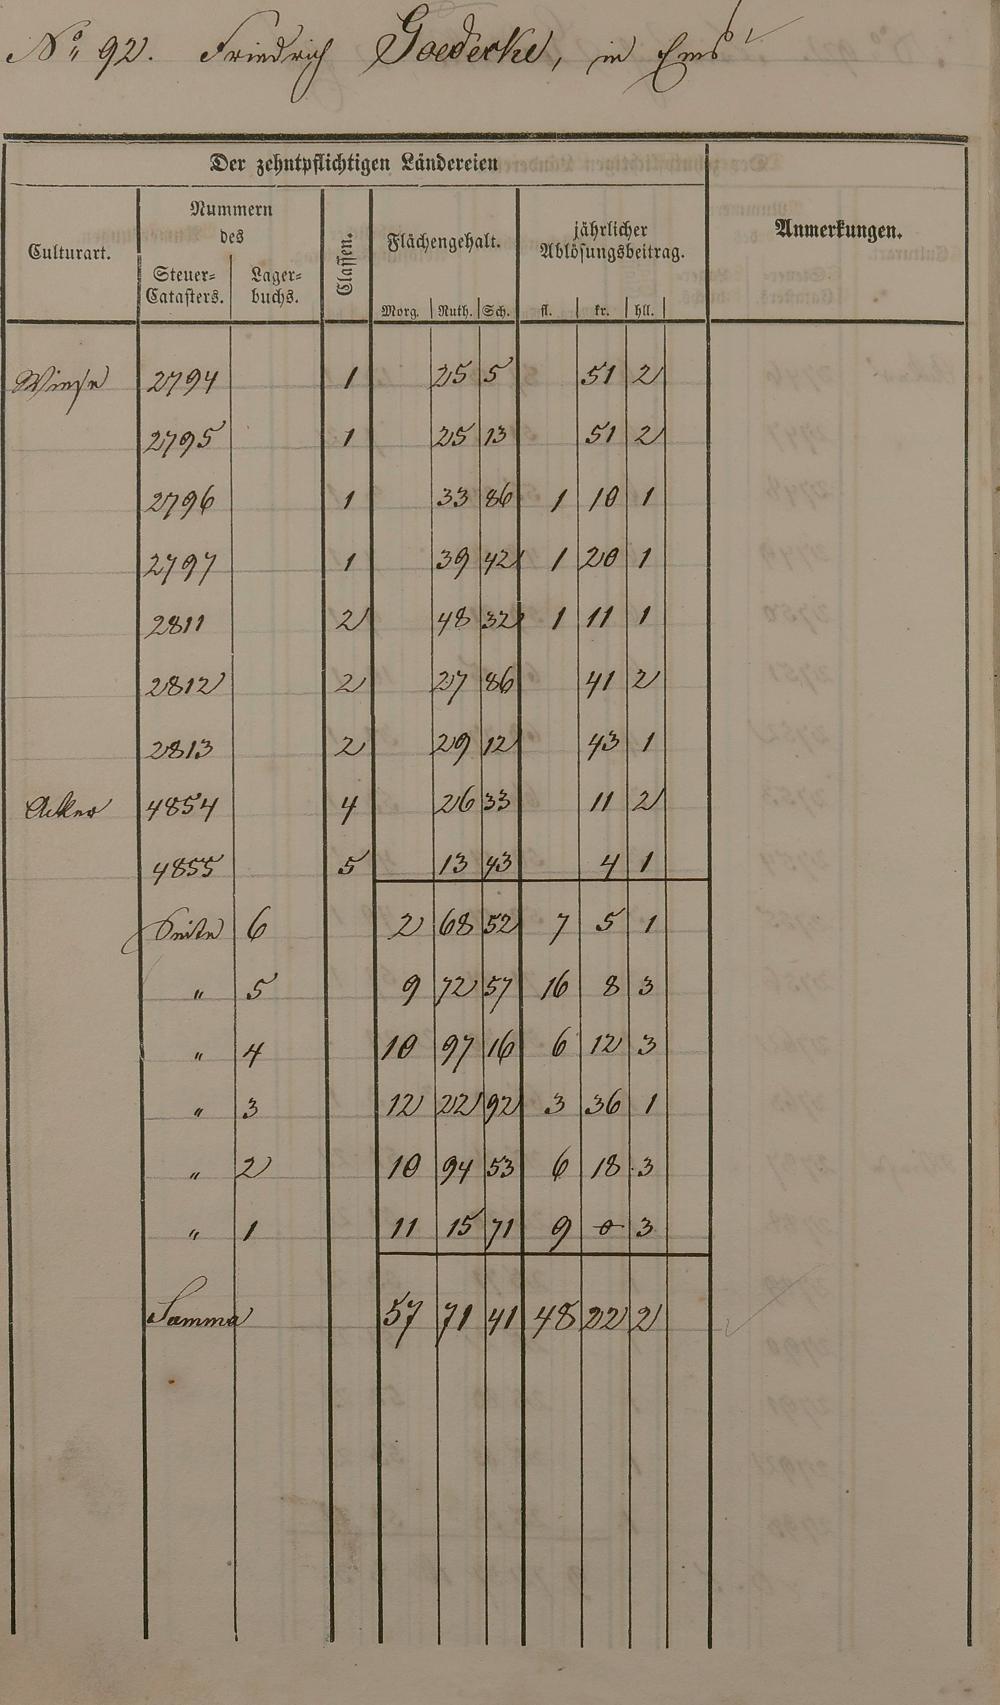 No. 92. Friedrich Goedecke, in Ems
Der zehntpflichtigen Ländereien
Anmerkungen.
Culturart.
Nummern
des
Steuer-
Catasters.
Lager-
buchs.
Classen.
Flächengehalt.
Morg. Ruth. Sch.
jährlicher
Ablösungsbeitrag.
fl. kr. hll.
Wiese 2794 1 25 5 51 2
2795 1 25 13 51 2
2796 1 33 86 1 10 1
2797 1 39 42 1 20 1
2811 2 48 32 1 11 1
2812 2 27 86 41 2
2813 2 29 12 43 1
Acker 4854 4 26 33 11 2
4855 5 13 43 4 1
Seite 6 2 68 52 7 5 1
" 5 9 72 57 16 8 3
" 4 10 97 16 6 12 3
" 3 12 22 92 3 36 1
" 2 10 94 53 6 18 3
" 1 11 15 71 9 0 3
Summa 57 71 41 48 22 2